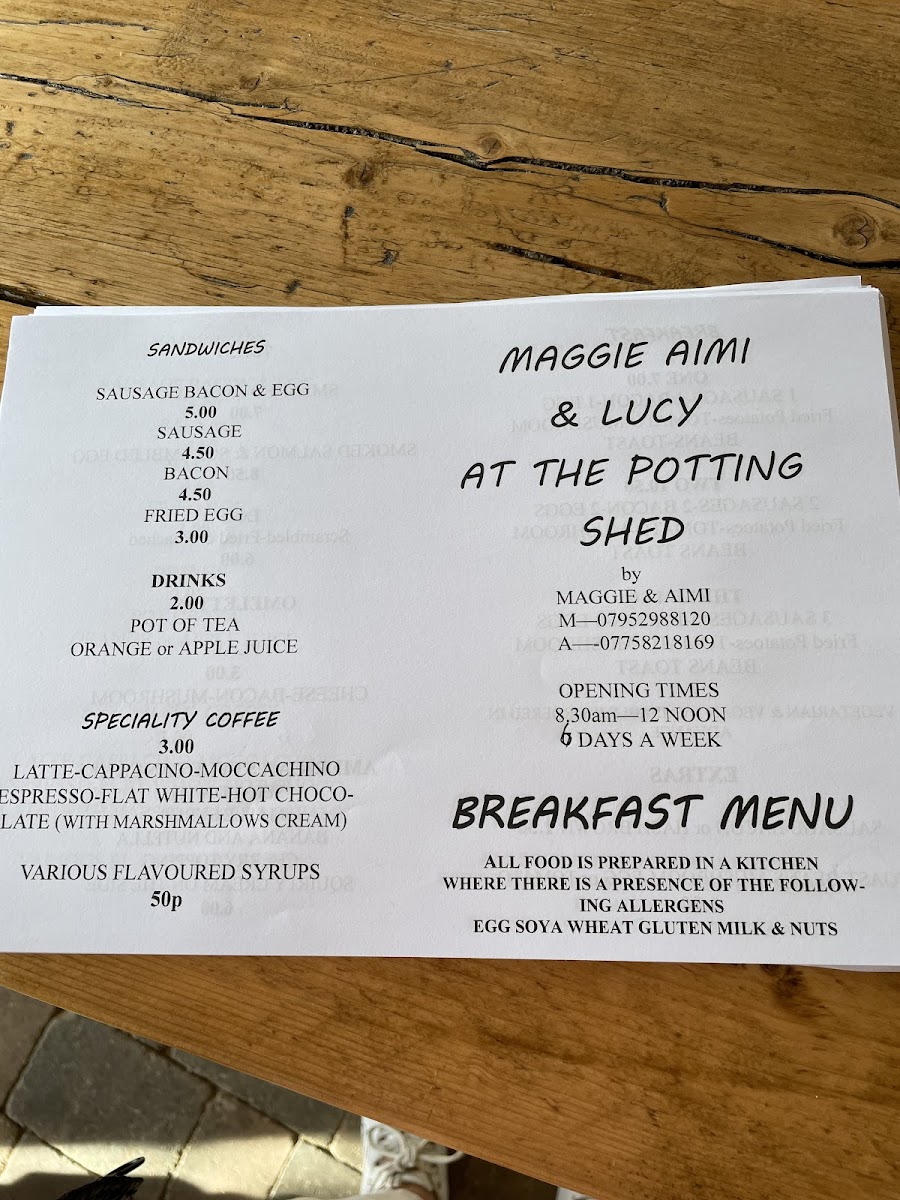 SANDWICHES
SAUSAGE BACON & EGG
5.00
SAUSAGE
4.50
BACON
4.50
FRIED EGG
3.00
DRINKS
2.00
POT OF TEA
ORANGE or APPLE JUICE
SPECIALITY COFFEE
3.00
LATTE-CAPPACINO-MOCCACHINO
ESPRESSO-FLAT WHITE-HOT CHOCO-
LATE (WITH MARSHMALLOWS CREAM)
VARIOUS FLAVOURED SYRUPS
50p
MAGGIE AIMI
& LUCY
AT THE POTTING
SHED
by
MAGGIE & AIMI
M—07952988120
A—-07758218169
OPENING TIMES
8,30am—12 NOON
6 DAYS A WEEK
BREAKFAST MENU
ALL FOOD IS PREPARED IN A KITCHEN
WHERE THERE IS A PRESENCE OF THE FOLLOW-
ING ALLERGENS
EGG SOYA WHEAT GLUTEN MILK & NUTS